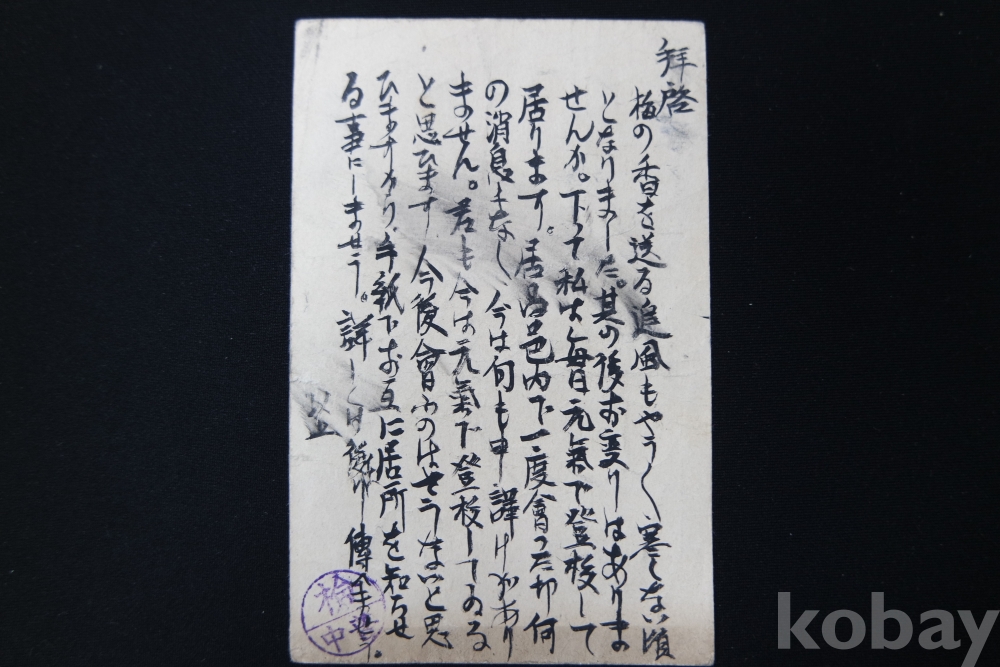 拝啓
梅の香を送る追風もやう〱寒くない頃
となりました。其の後お変りはありま
せんか。下って私は毎日元氣で登校して
居ります。居邑内で一二度會った却何
の消息もなく今は何も申し譯けがあり
ません。君も今は元氣で登校してゐる
と思ひます 今後會ふのはせうないと思
ひますから、手紙でお互に居所を知らせ
る事にしませう。詳しくは後
検
中
kobay